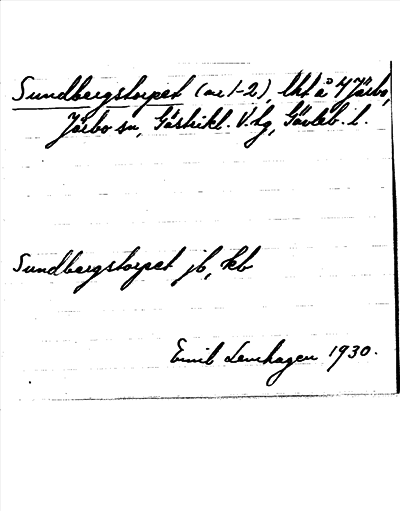 Sundbergstorpet (nr 1-2), lht å 4 Järbo,
Järbo sn, Gästrikl. V. tg, Gävleb. l.
Sundbergstorpet jb, kb
Emil Levhagen 1930.